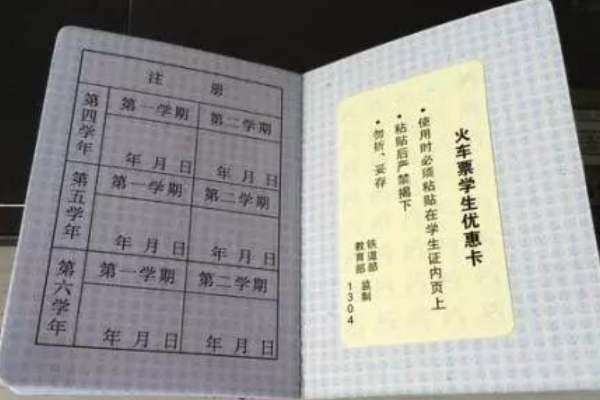 注 册
第四学年
第一学期
第二学期
年 月 日
年 月 日
第五学年
第一学期
第二学期
年 月 日
年 月 日
第六学年
第一学期
第二学期
年 月 日
年 月 日
火车票学生优惠卡
• 使用时必须粘贴在学生证内页上
• 粘贴后严禁揭下
• 勿折、妥存
铁道部
教育部 监制
1304